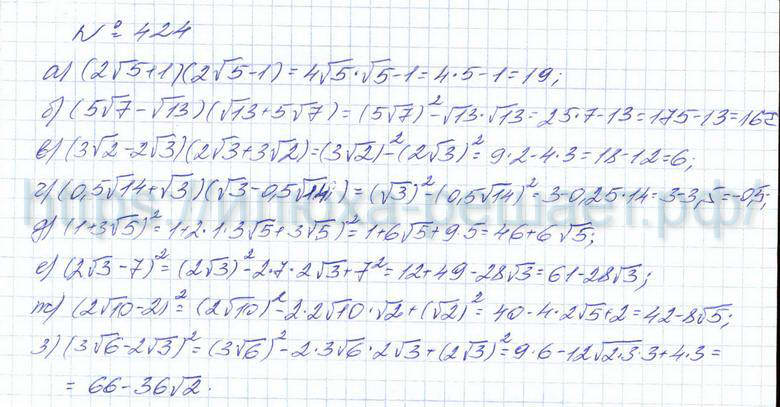 № 424
а) (2√5+1)(2√5-1)=4√5·√5-1=4·5-1=19;
б) (5√7-√13)(√13+5√7)=(5√7)²-√13·√13=25·7-13=175-13=162
в) (3√2-2√3)(2√3+3√2)=(3√2)²-(2√3)²=9·2-4·3=18-12=6;
г) (0,5√14+√3)(√3-0,5√14)=(√3)²-(0,5√14)²=3-0,25·14=3-3,5=-0,5;
д) (1+3√5)²=1+2·1·3√5+3√5)²=1+6√5+9·5=46+6√5;
е) (2√3-7)²=(2√3)²-2·7·2√3+7²=12+49-28√3=61-28√3;
ж) (2√10-2)²=(2√10)²-2·2√10·√2+(√2)²=40-4·2√5+2=42-8√5;
з) (3√6-2√3)²=(3√6)²-2·3√6·2√3+(2√3)²=9·6-12√2·3·3+4·3=
=66-36√2.